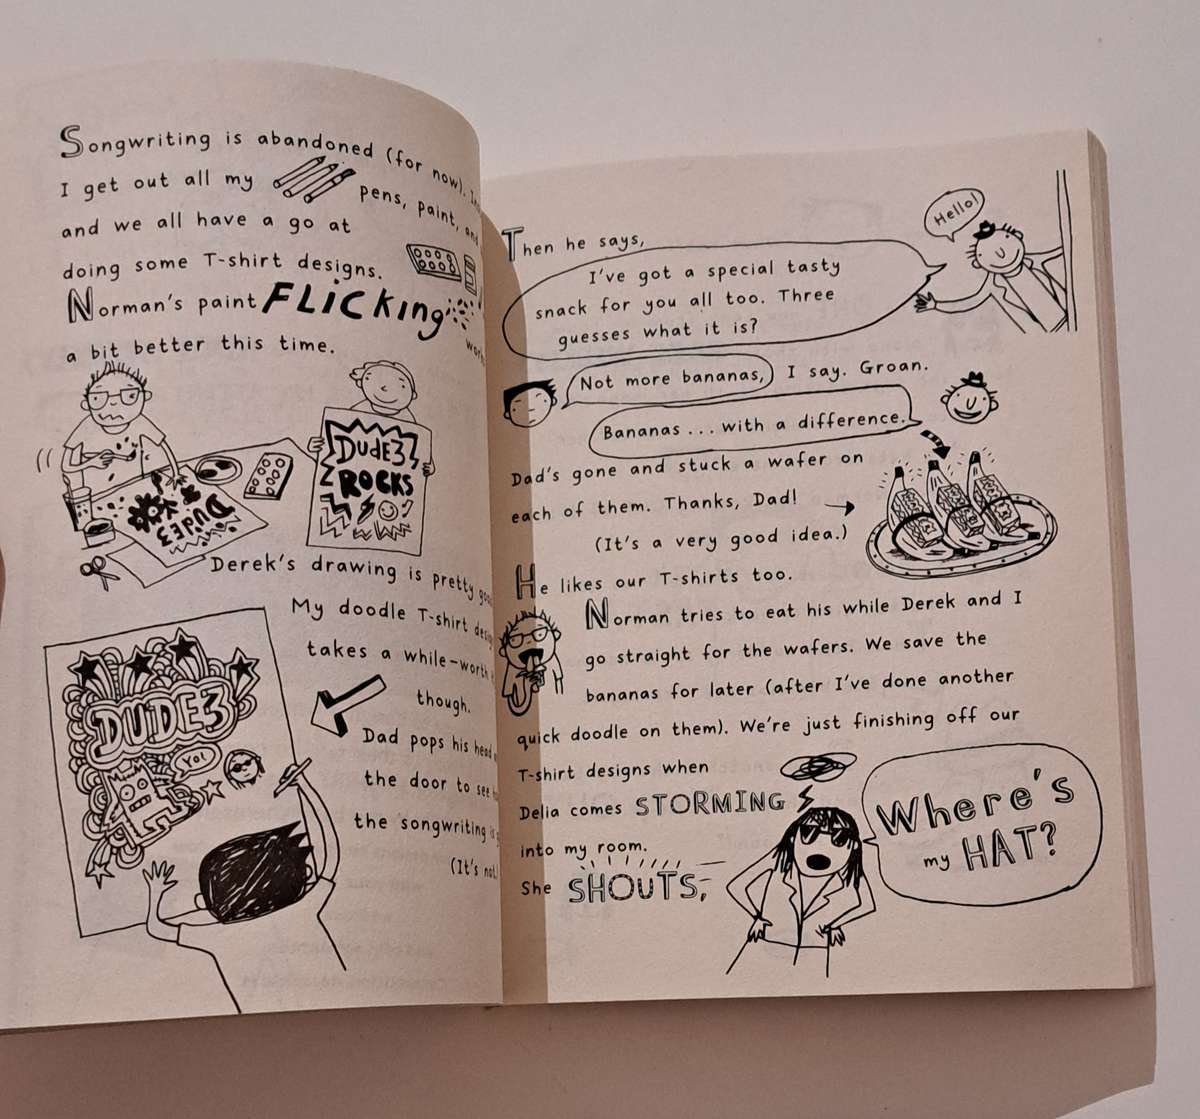 Songwriting is abandoned (for now).
I get out all my pens, paint, and
and we all have a go at
doing some T-shirt designs.
Norman's paint FLiCKing
works
a bit better this time.
DUDE3
ROCKS
DUDE3
Derek's drawing is pretty
My doodle T-shirt
takes a while-worth
though.
DUDE3
YO!
Dad pops his head
the door to see
the songwriting is
(It's not.
Then he says,
Hello!
I've got a special tasty
snack for you all too. Three
guesses what it is?
Not more bananas, I say. Groan.
Bananas ... with a difference.
Dad's gone and stuck a wafer on
each of them. Thanks, Dad!
(It's a very good idea.)
He likes our T-shirts too.
Norman tries to eat his while Derek and I
go straight for the wafers. We save the
bananas for later (after I've done another
quick doodle on them). We're just finishing off our
T-shirt designs when
Delia comes STORMING
into my room.
She SHOUTS,
Where's
my HAT?